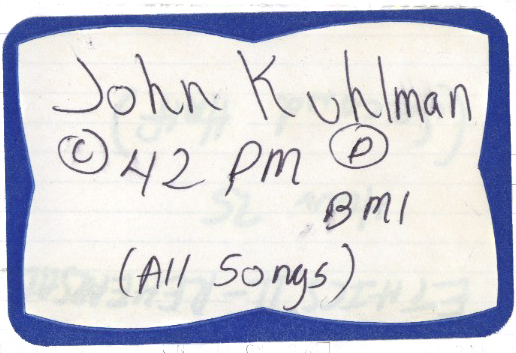 John Kuhlman
© 42 PM ℗
BMI
(All Songs)